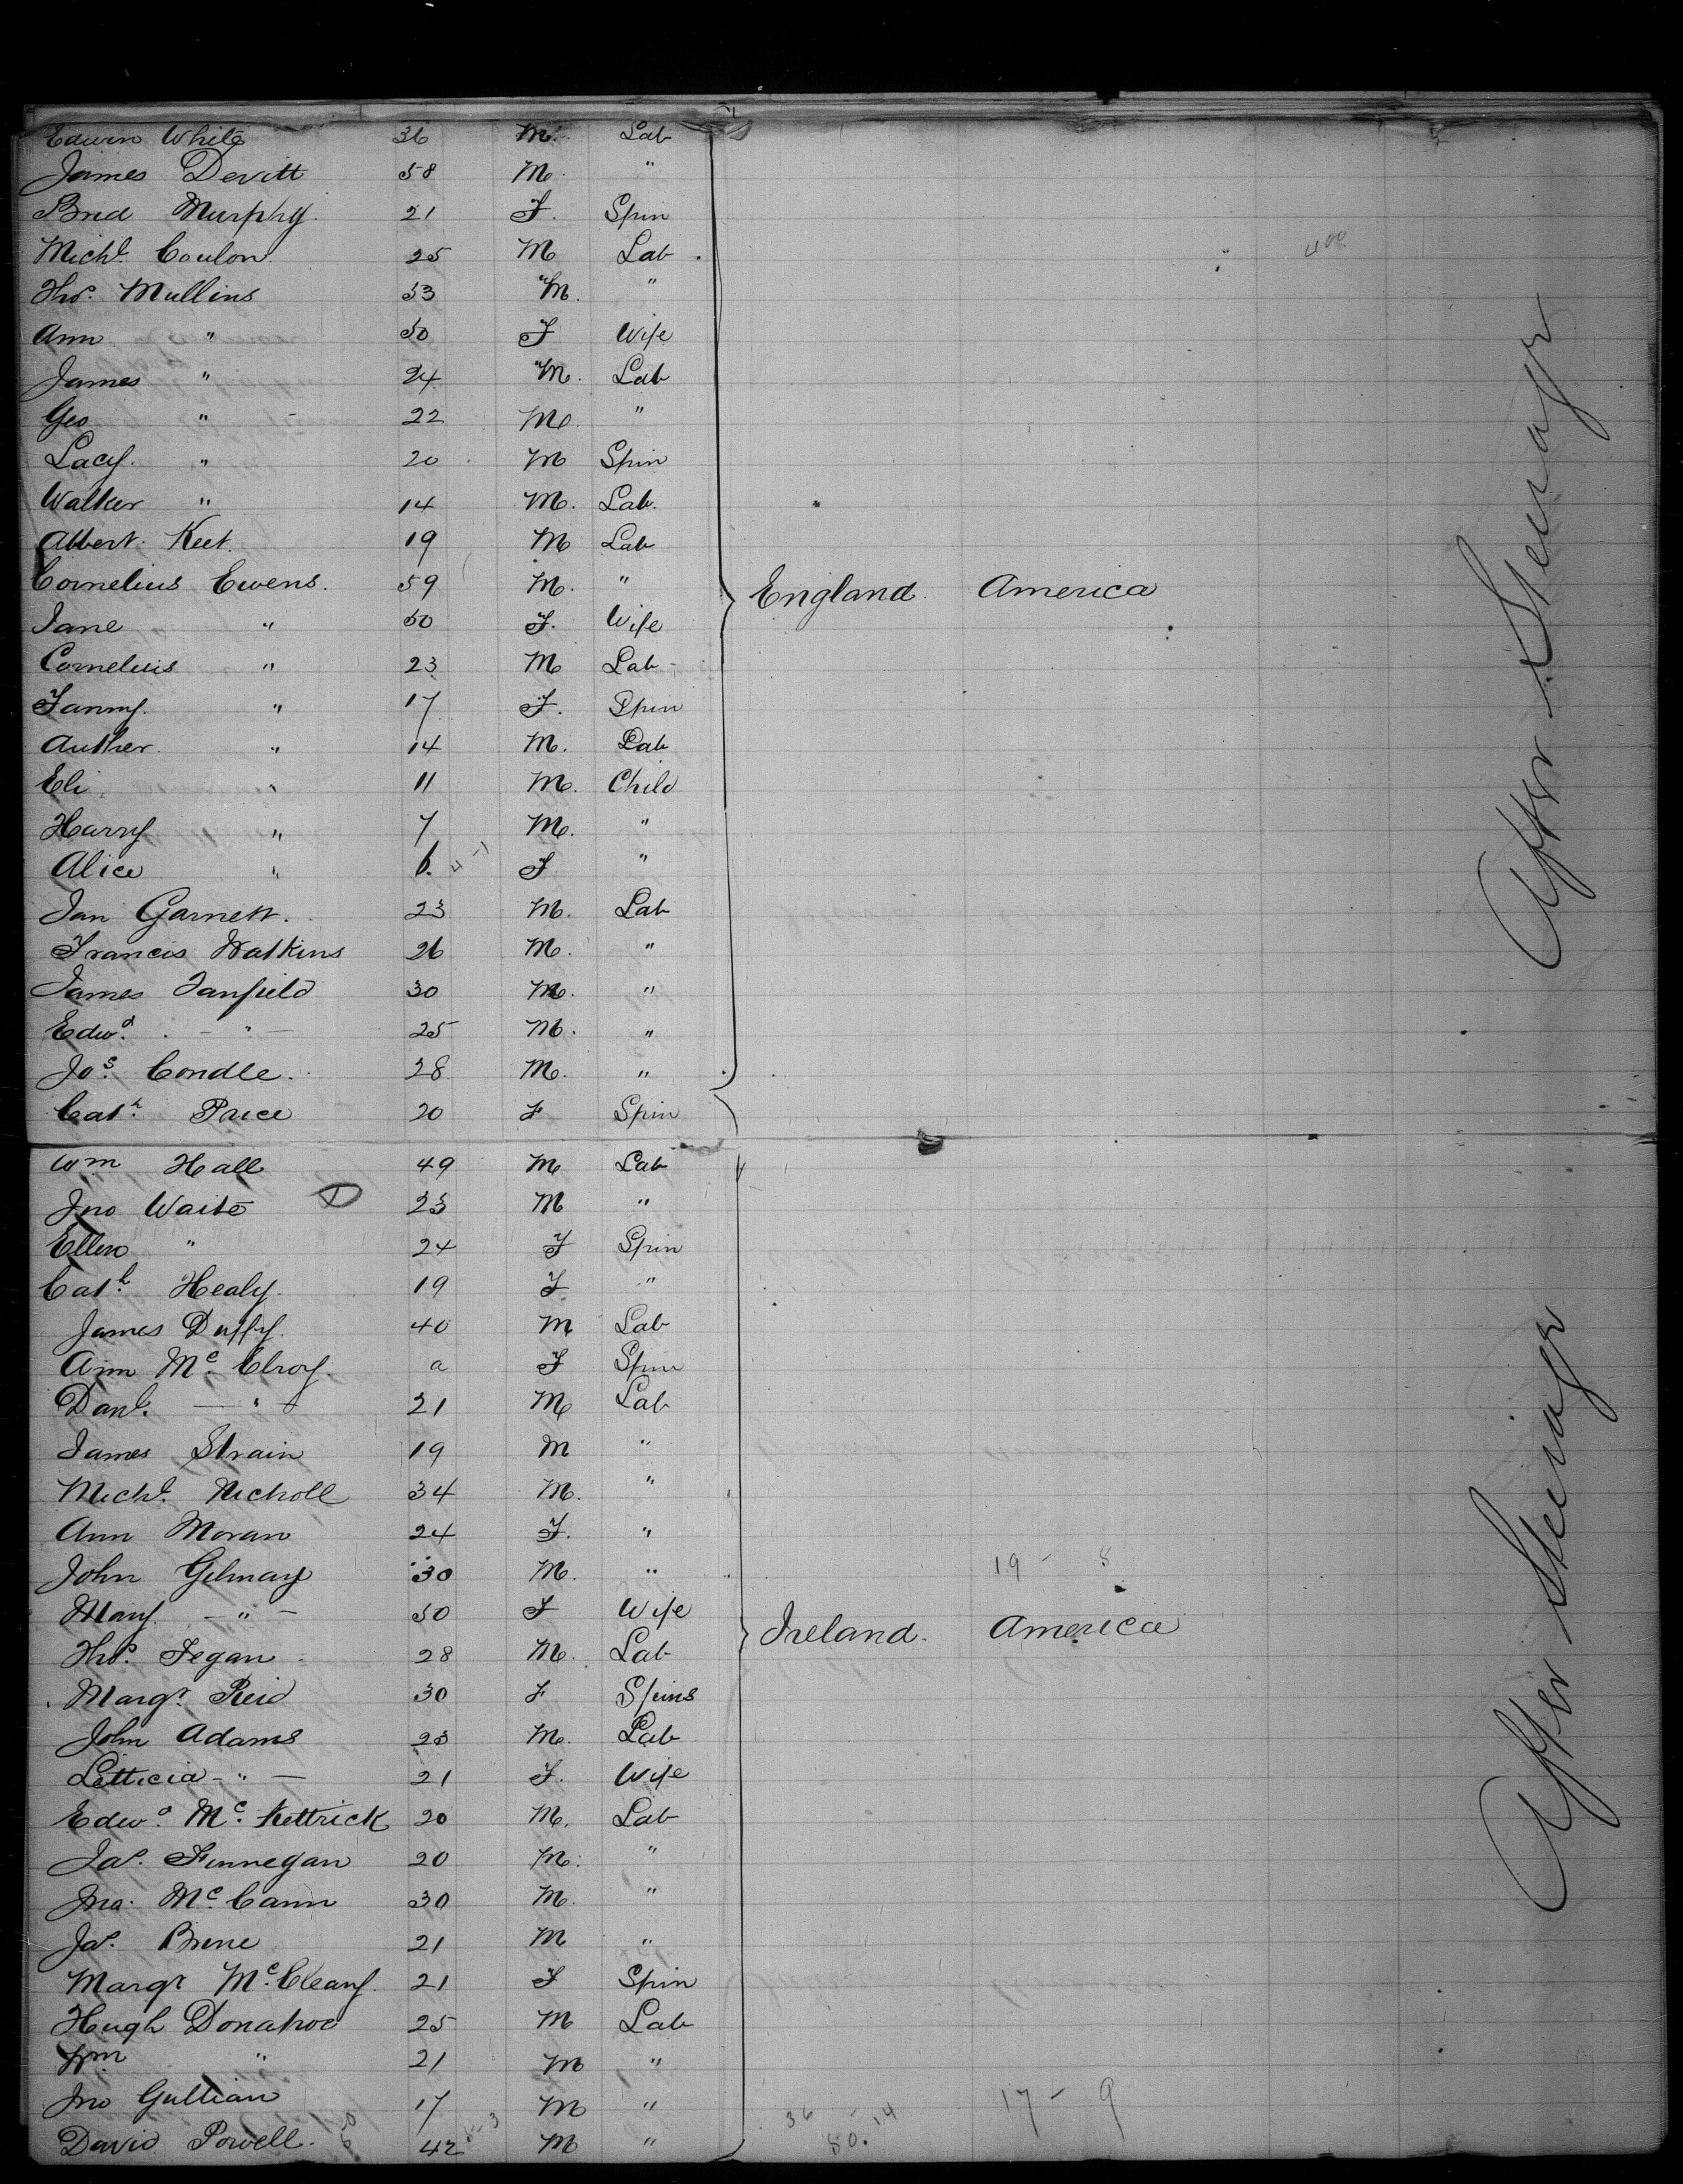 Edwin White 36 M. Lab
James Devitt 58 M. "
Brid Murphy. 21 F. Spin
Michl. Coulon. 25 M Lab
Thos. Mullins 53 M. "
Ann " 50 F Wife
James " 24 M. Lab
Geo " 22 M. "
Lacy. " 20 M Spin
Walker " 14 M. Lab.
Albert. Keet. 19 M Lab
Cornelius Ewens. 59 M. "
England. America
Jane " 50 F. Wife
Cornelius " 23 M Lab
Fanny. " 17 F. Spin
Auther. " 14 M. Lab
Eli " 11 M. Child
Harry " 7 M. "
Alice " 6. F "
Jan Garnett. 23 M. Lab
Francis Watkins 26 M. "
James Tanfield 30 M. "
Edwd. " 25 M. "
Jos. Condle. 28 M. "
Cath. Price 20 F Spin
After Steerage
Wm Hall 49 M Lab
Jno Waite D 23 M "
Ellen " 24 F Spin
Cath. Healy. 19 F "
James Duffy. 40 M Lab
Ann Mc. Elroy. a F Spin
Danl. " 21 M Lab
James Strain 19 M "
Michl. Nicholl 34 M. "
Ann Moran 24 F. "
John Gilmay 30 M. "
19 - 8
Mary. " 50 F Wife
Ireland. America
Thos. Fegan 28 M. Lab
Margr. Reid 30 F Spins
John Adams 23 M. Lab
Letticia " 21 F. Wife
Edwd. Mc. Kettrick 20 M. Lab
Jas. Finnegan 20 M. "
Jno. Mc. Cann 30 M. "
Jas. Brine 21 M "
Margr Mc. Cleary. 21 F Spin
Hugh Donahoo 25 M Lab
Wm " 21 M "
Jno Gullian 17 M "
17 - 9
David Powell. 42 M "
36 - 14
50.
After Steerage